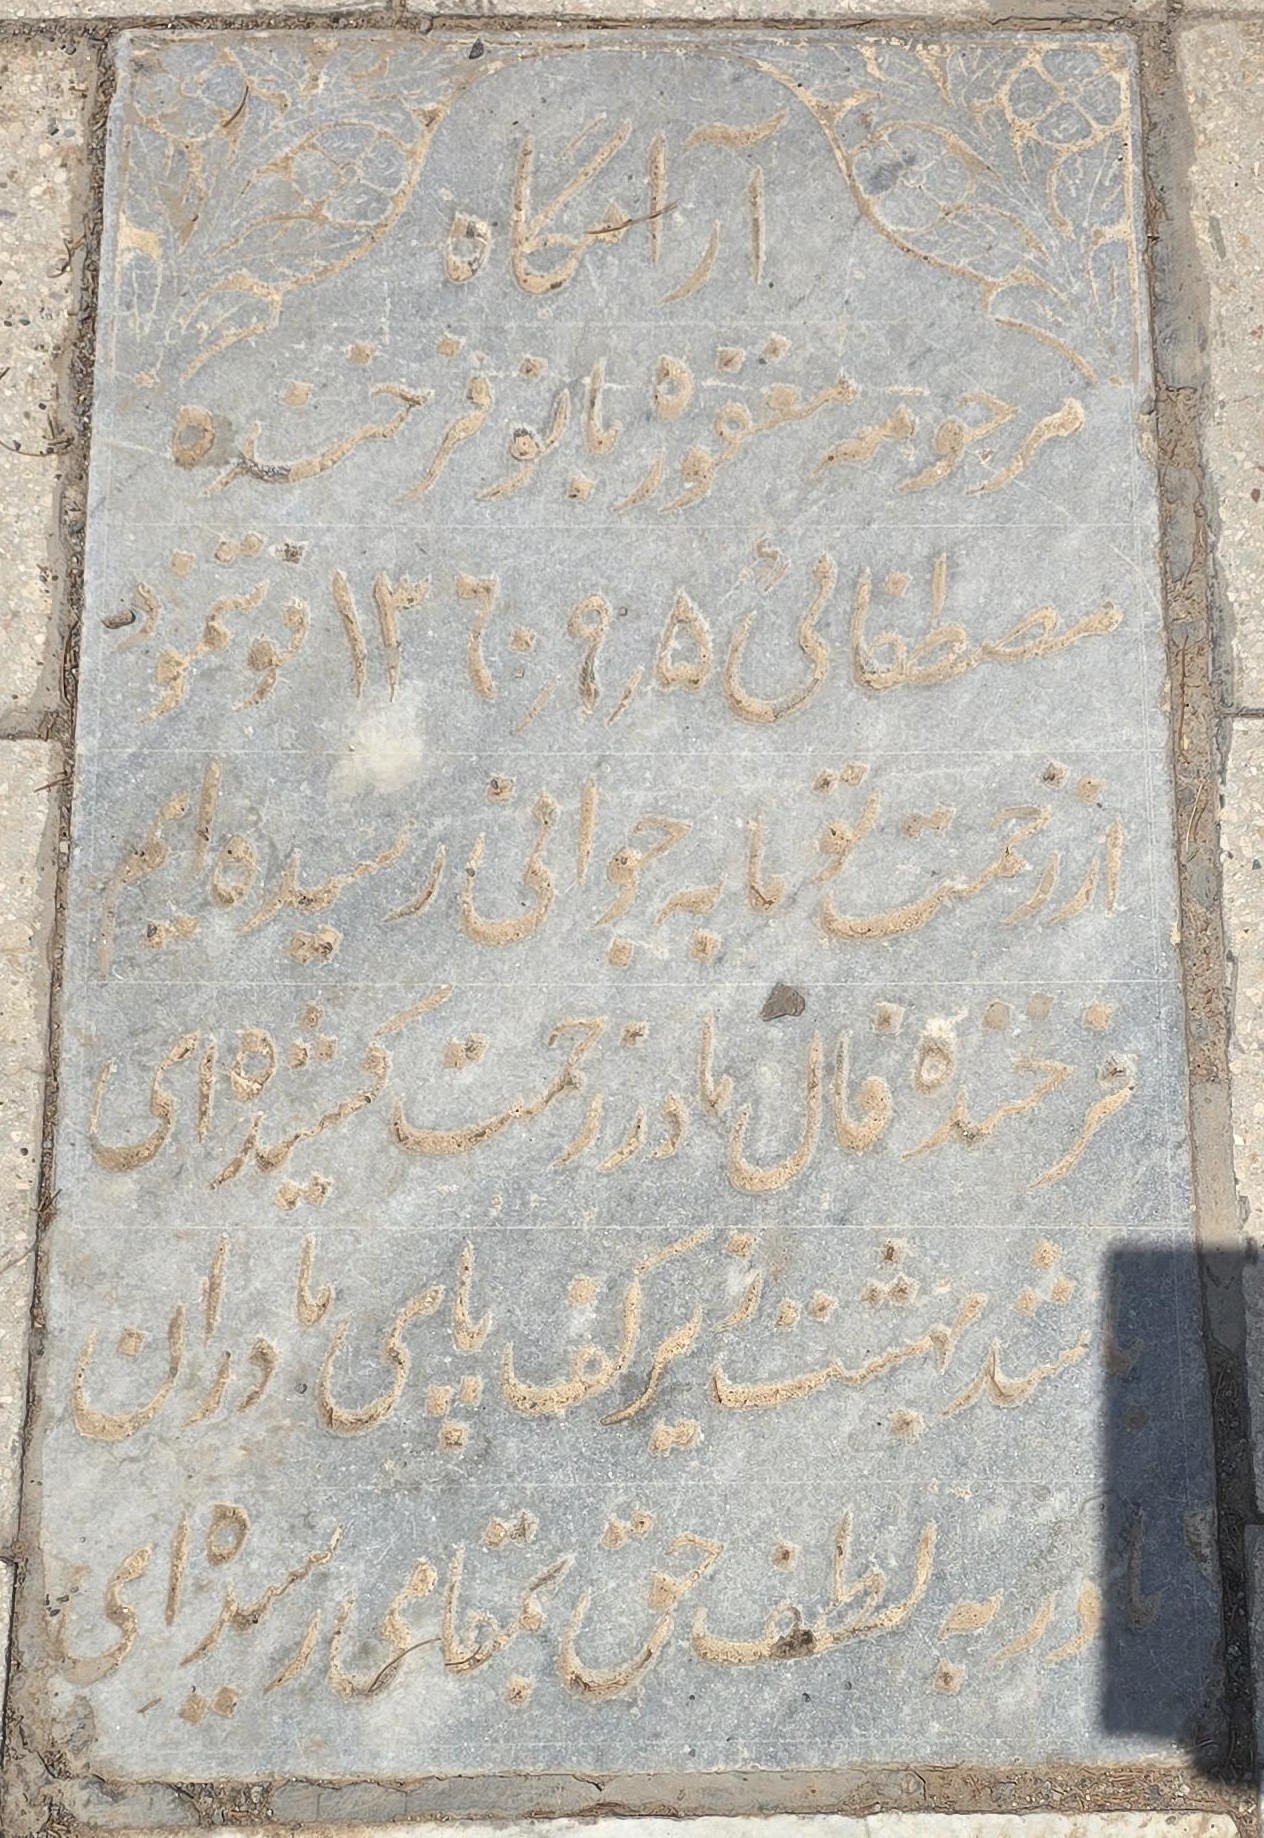 آرامگاه
مرحومه مغفوره بانو فرخنده
مصطفائی ۵/۹/۱۳۶۰ فوت نمود
از زحمت تو ما به جوانی رسیده ایم
فرخنده فال مادر زحمت کشیده ای
باشد بهشت زیر کف پای مادران
مادر به لطف حق بمقامی رسیده ای